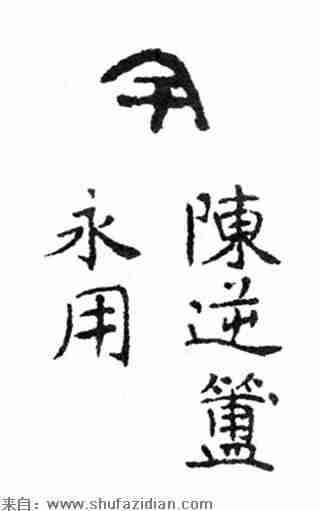 陳逆簠
永用
来自：www.shufazidian.com